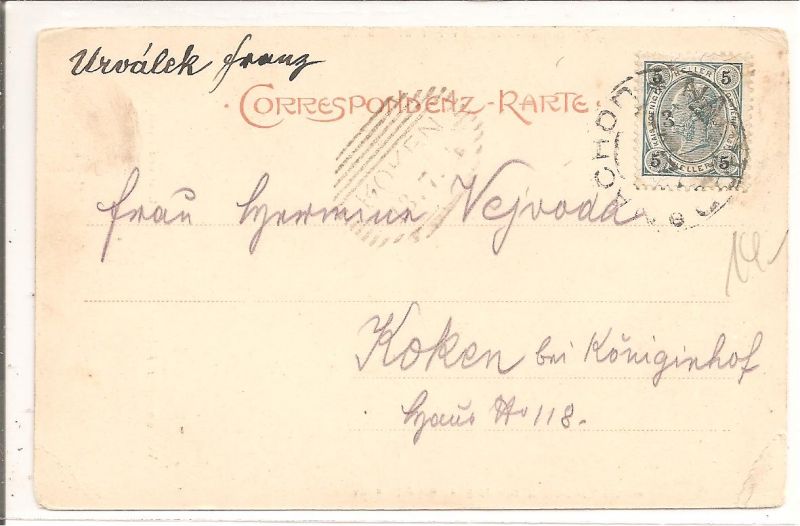 Urválek franz
· CORRESPONDENZ-KARTE. ·
5 5
5 5
KOKEN
Frau Hermine Vejvoda
Koken bei Königinhof
Haus No 118.